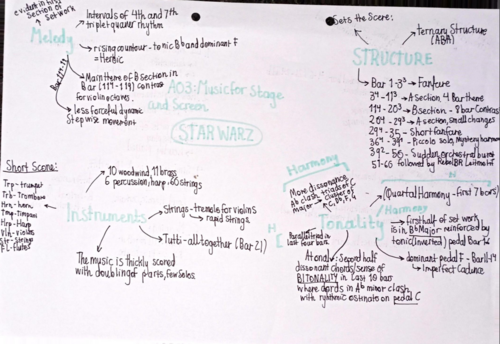 evident in first
section of
set work
Melody
Intervals of 4th and 7th
triplet quaver rhythm
rising countour - tonic Bb and dominant F
= Heroic
Main theme of B section in
Bar (117-119) contrast
for violin octaves.
less forceful dynamic
Stepwise movement
AO3: Music for Stage
and Screen
STAR WARZ
Sets the Scene:
Ternary Structure
(ABA)
STRUCTURE
Bar 1-3³ → Fanfare
A section, 4 Bar theme
B section - 8 bar contrast
A section, small changes
Short fanfare
Piccolo solo, Mystery harmony
Sudden orchestral burst
followed by Rebel Leitmotif
Short Scene:
Trp - trumpet
Trb - Trombone
Hrn - horn
Tmp - Timpani
Hrp - Harp
Vln - violins
Str - Strings
Fl - Flutes
10 woodwind, 11 brass
6 percussion, harp, 60 strings
Instruments
Strings - tremelo for violins
rapid Strings
Tutti - all together (Bar 21)
The music is thickly scored
with doubling of parts, few solos.
Harmony
More dissonance
Ab clash, triads of C
major → cluster of
Parallel triad in
last four bars
Tonality
(Quartal Harmony - first 7 bars)
Harmony
first half of set work
is in Bb Major - reinforced by
tonic (inverted) pedal
dominant pedal F - Bar 11-14
Imperfect Cadence
Atonal: Second half
dissonant chords/sense of
BITONALITY in last 10 bars
where chords in Ab minor clash
with rhythmic ostinato on pedal C